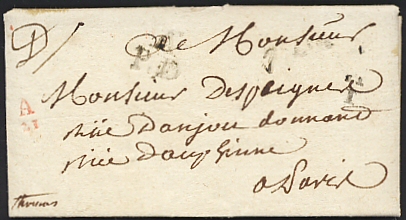 D/ A Monsieur
P.P
Monsieur Despeignes
A
rüe Danjou donnant
rüe Dauphinne
a Paris